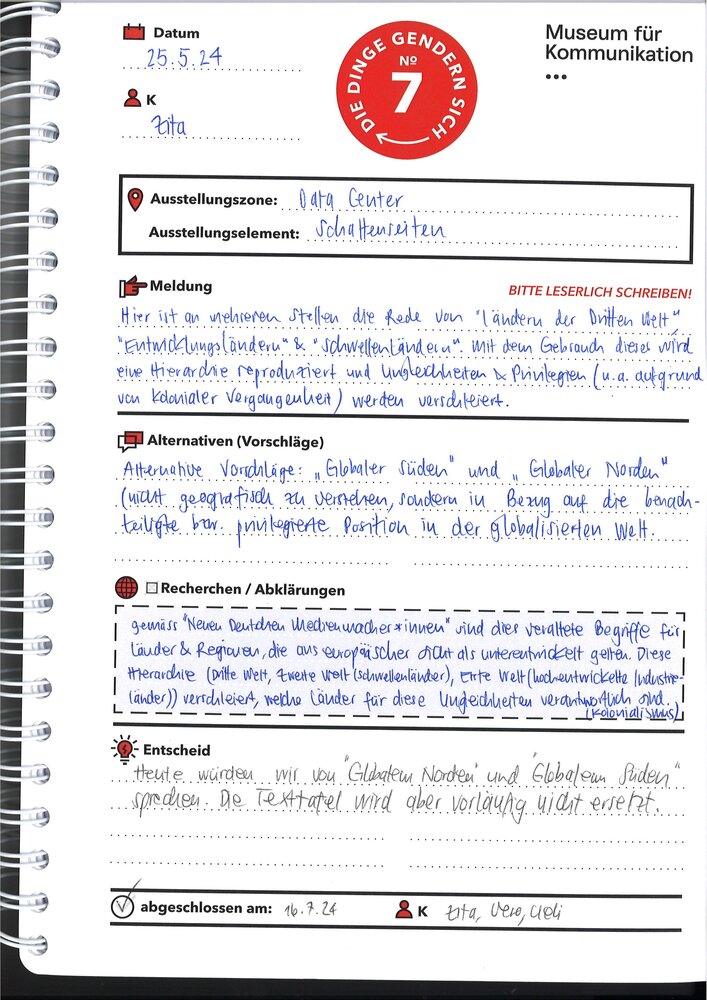 Datum
25.5.24
K
Zita
DIE DINGE GENDERN SICH
Nº
7
Museum für
Kommunikation
...
Ausstellungszone: Data Center
Ausstellungselement: Schattenseiten
Meldung
BITTE LESERLICH SCHREIBEN!
Hier ist an mehreren Stellen die Rede von "Ländern der Dritten Welt"
"Entwicklungsländern" & "Schwellenländern". Mit dem Gebrauch dieser wird
eine Hierarchie reproduziert und Ungleichheiten & Privilegien (u.a. aufgrund
von kolonialer Vergangenheit) werden verschleiert.
Alternativen (Vorschläge)
Alternative Vorschläge: „Globaler Süden" und „Globaler Norden"
(nicht geografisch zu verstehen, sondern in Bezug auf die benach-
teiligte bzw. privilegierte Position in der globalisierten Welt.
Recherchen / Abklärungen
gemäss "Neuen Deutschen Medienmacher*innen" sind dies veraltete Begriffe für
Länder & Regionen, die aus europäischer Sicht als unterentwickelt gelten. Diese
Hierarchie (Dritte Welt, Zweite Welt (Schwellenländer), Erste Welt (hochentwickelte Industrie-
länder)) verschleiert, welche Länder für diese Ungleichheiten verantwortlich sind.
(Kolonialismus)
Entscheid
Heute würden wir von "Globalem Norden" und "Globalem Süden"
sprechen. Die Texttafel wird aber vorläufig nicht ersetzt.
abgeschlossen am: 16.7.24
K Zita, Vero, Ueli